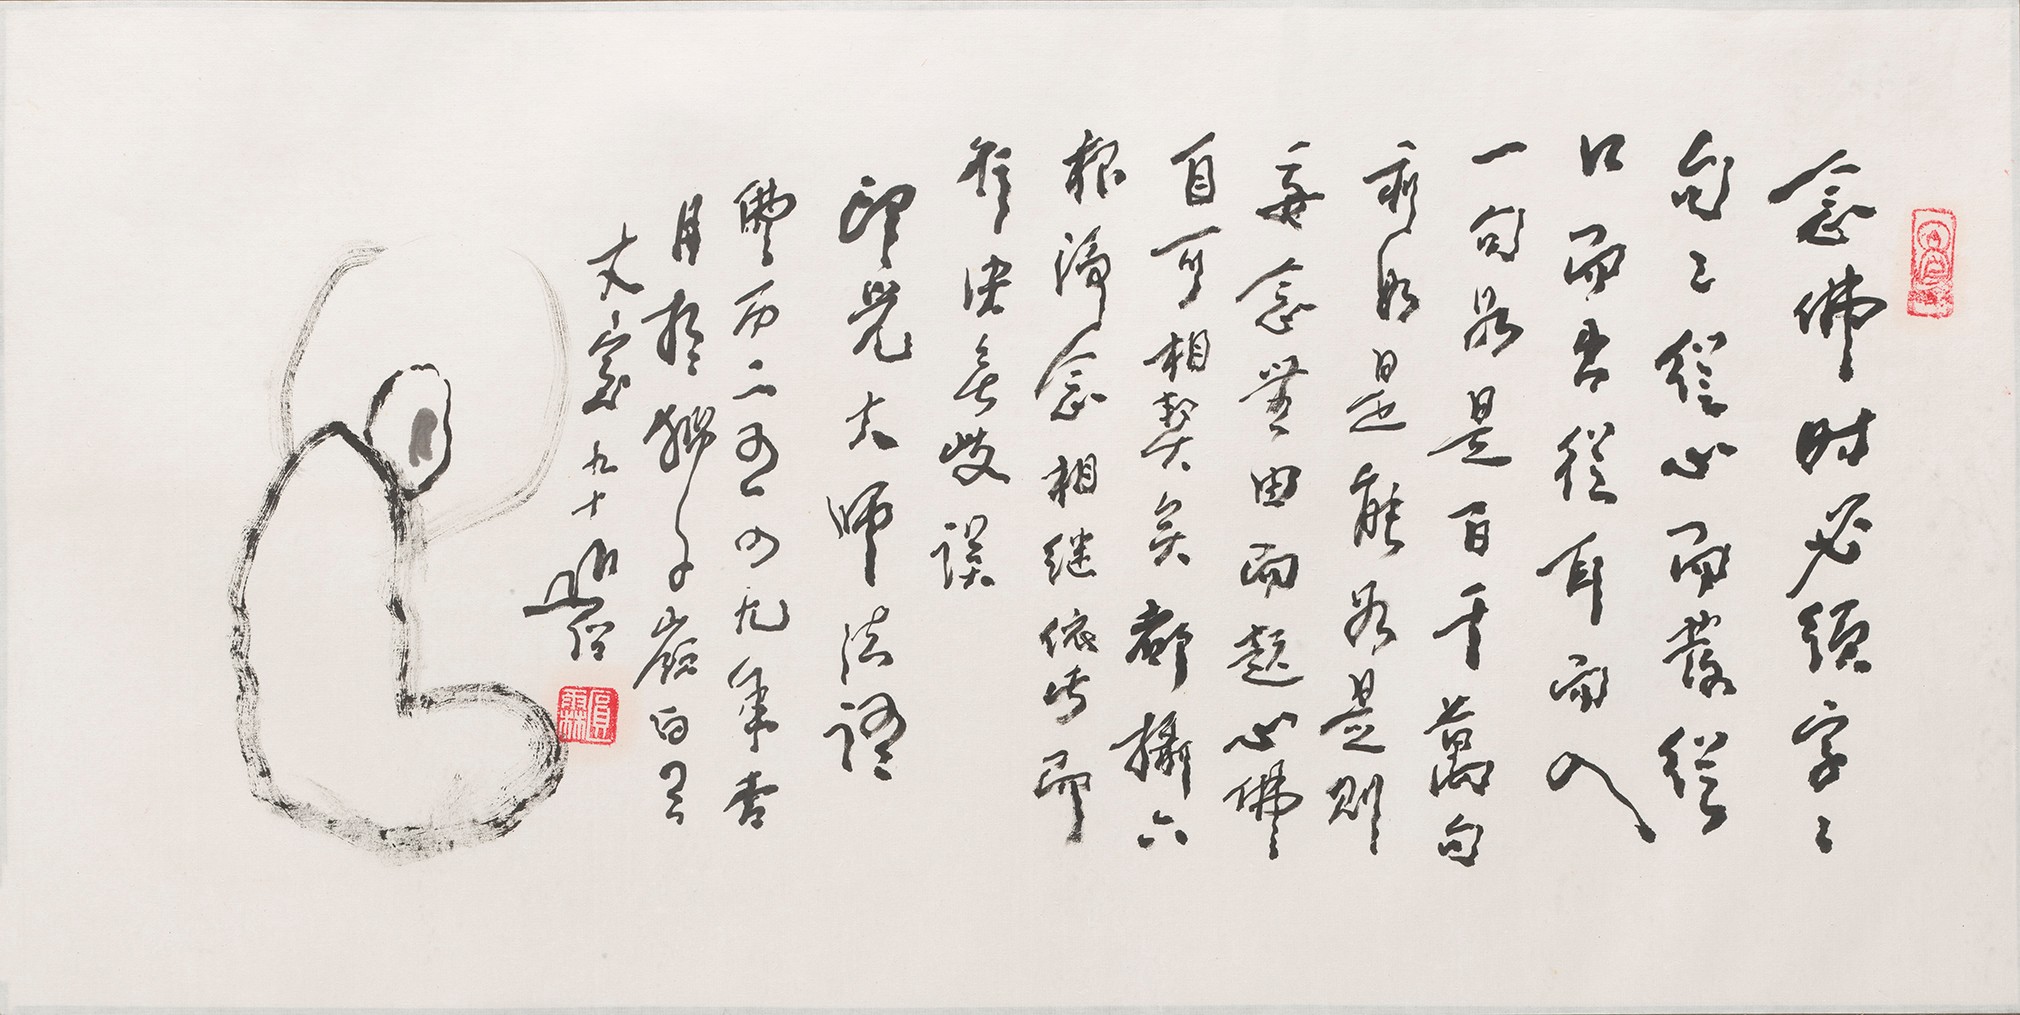 念佛时必須字〻
句〻從心而發從
口而出從耳而入
一句如是百千萬句
亦如是能如是則
妄念無由而起心佛
自可相契矣都攝六
根淨念相继依此而
行决無歧误
印光大師法語
佛历二五四九年杏
月於獅子嶺白雲
丈室九十山僧
圓霖